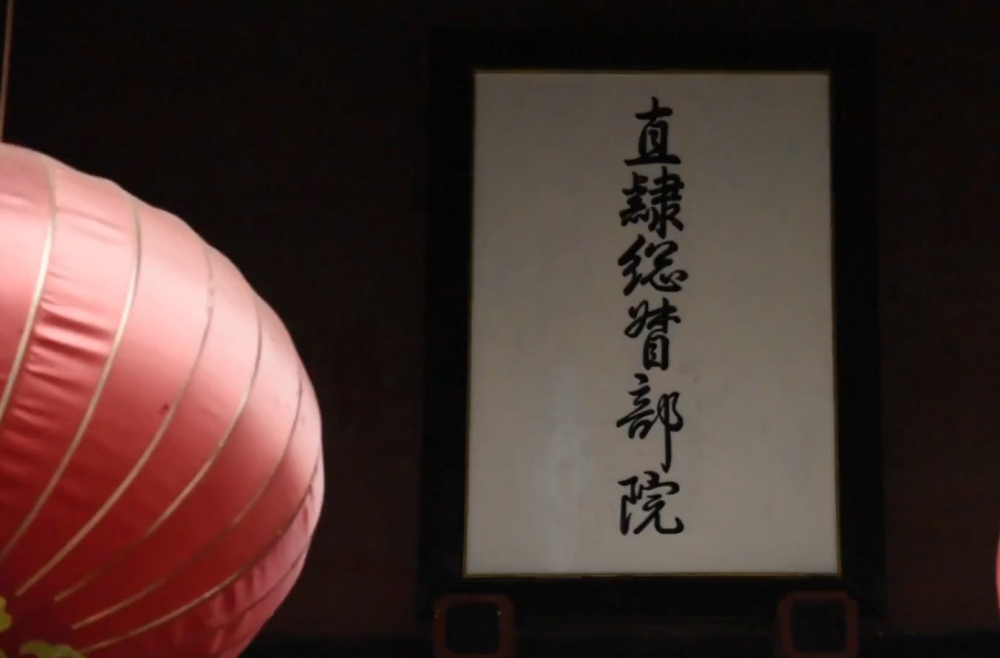 直隸総督部院